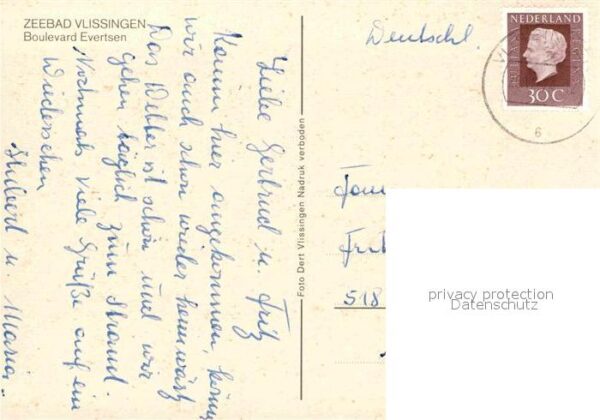 ZEEBAD VLISSINGEN
Boulevard Evertsen
Liebe Gertrud u. Fritz
Kaum hier angekommen,
wir auch schon wieder heimwärts
Das Wetter ist schön und wir
gehen täglich zum Strand.
Nochmals viele Grüße auf ein
Wiedersehen
Hubert u. Maria.
Foto Dert Vlissingen Nadruk verboden
Deutschl.
NEDERLAND
JULIANA REGINA
30 C
6
Fam
Frit
518
privacy protection
Datenschutz